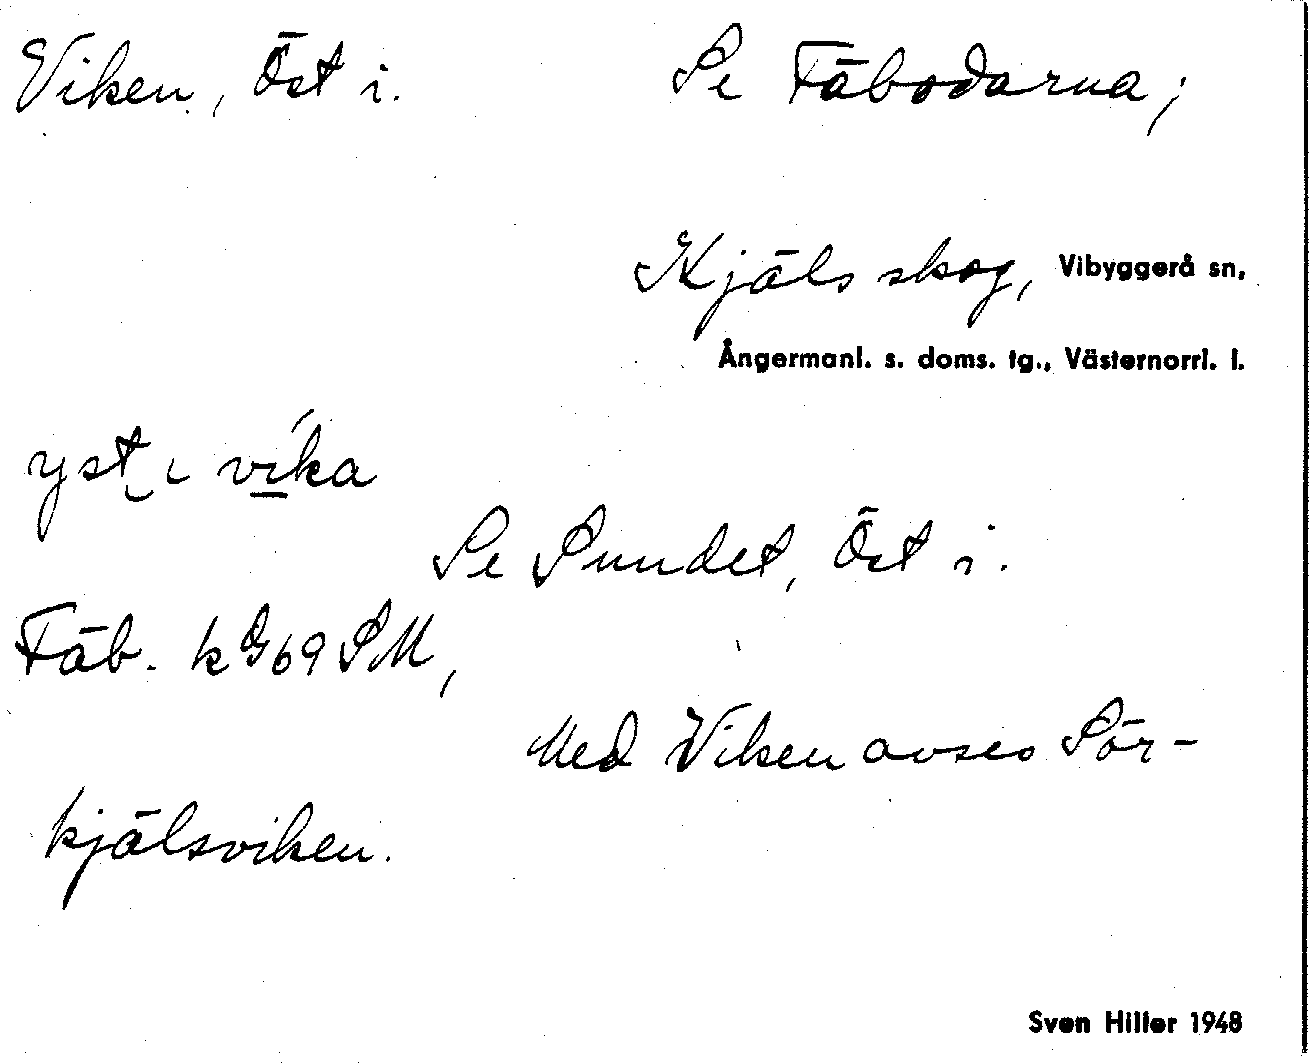 Viken, Öst i. Se Fäbodarna;
Kjäls skog, Vibyggerå sn,
Ångermanl. s. doms. tg., Västernorrl. l.
yst i víka
Se Sundet, Öst i.
Fäb. k G69 SM,
Med Viken avses Sör-
kjälsviken.
Sven Hiller 1948